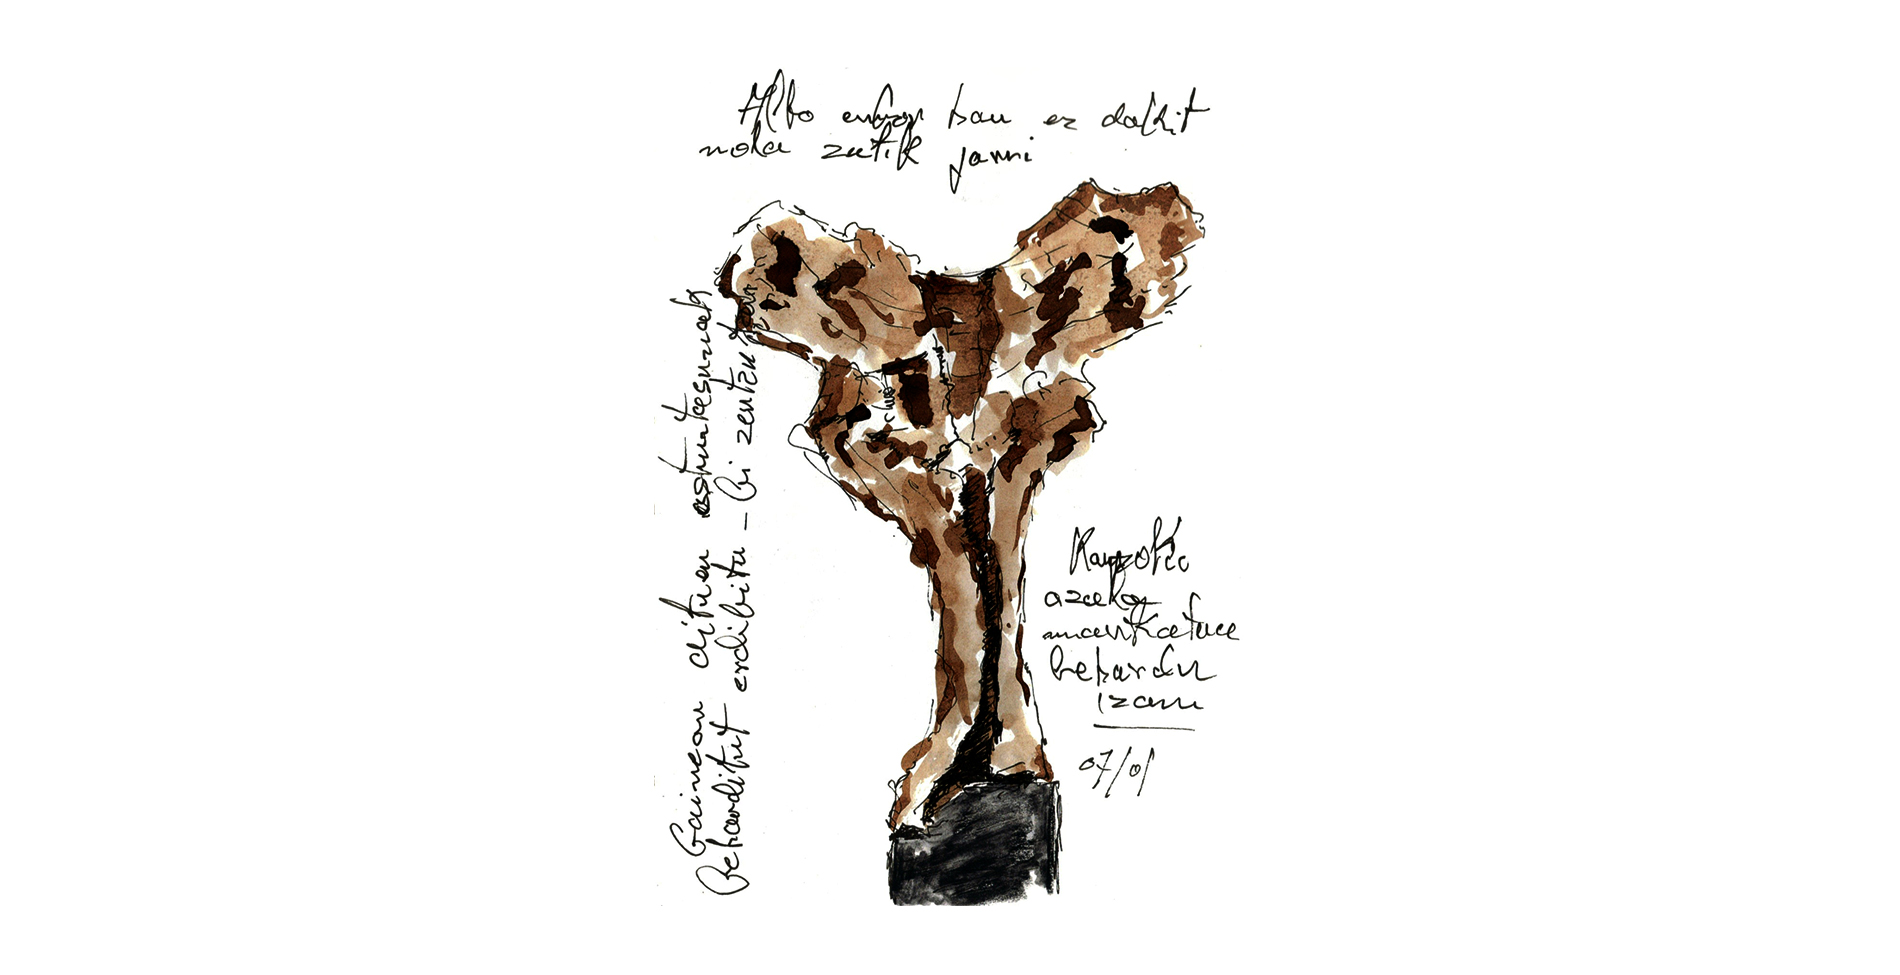 Albo enbor hau ez dakit
nola zutik jarri
Gainean dituen estutasunak
beharditut erdibitu – bi zentzu
Kanpoko
azala
markatua
behar du
izan
07/01